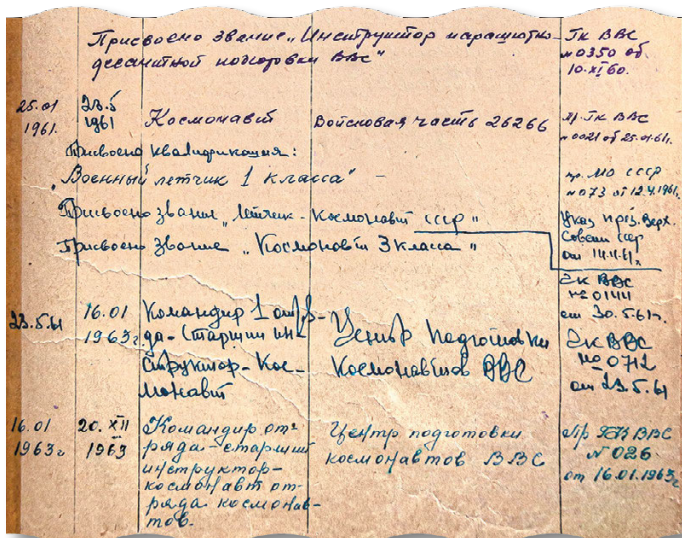 Присвоено звание „Инструктор парашютно-
десантной подготовки ВВС"
Гк ВВС
№0350 об
10.XI.60.
25.01
1961г.
23.5
1961
Космонавт
Войсковая часть 26266
Пр. Гк ВВС
№0021 об 25.01.61г.
Присвоена квалификация:
„Военный летчик 1 класса" –
пр. МО СССР
№073 от 12.4.1961г.
Присвоено звание „Летчик-Космонавт СССР"
Указ през. Верх.
Совета ССР
от 14.4.61г.
Присвоено Звание „Космонавт 3 класса"
Гк ВВС
№0144
от 30.5.61г.
23.5.61
16.01
1963г.
Командир 1 отря-
да-старший ин-
структор-Кос-
монавт
Центр подготовки
Космонавтов ВВС
Гк ВВС
№0712
от 23.5.61
16.01
1963г
20.XII
1963
Командир от-
ряда-старший
инструктор-
космонавт от-
ряда космонав-
тов.
Центр подготовки
космонавтов ВВС
Пр ГК ВВС
№026
от 16.01.1963г